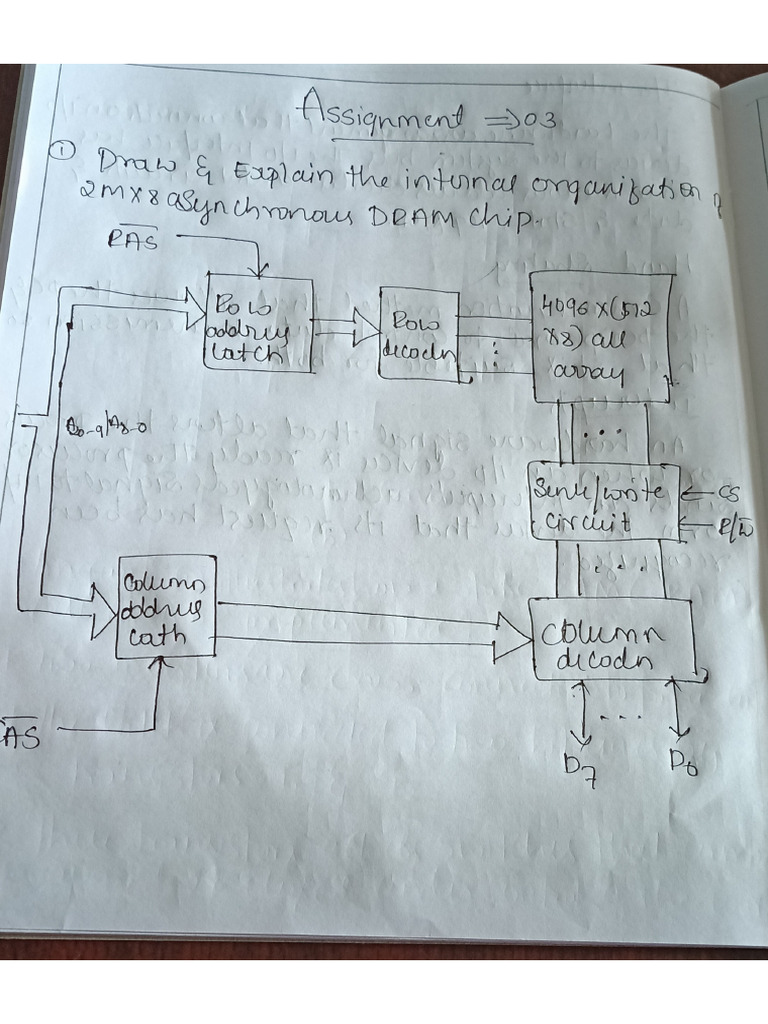 Assignment ⇒ 03
① Draw & Explain the internal organization of
2M x 8 asynchronous DRAM chip.
RAS
Row
address
latch
Row
decoder
4096 x (512
x 8) cell
array
A20-9/A8-0
Sense/write
circuit
CS
R/W
Column
address
latch
column
decoder
CAS
D7
D0